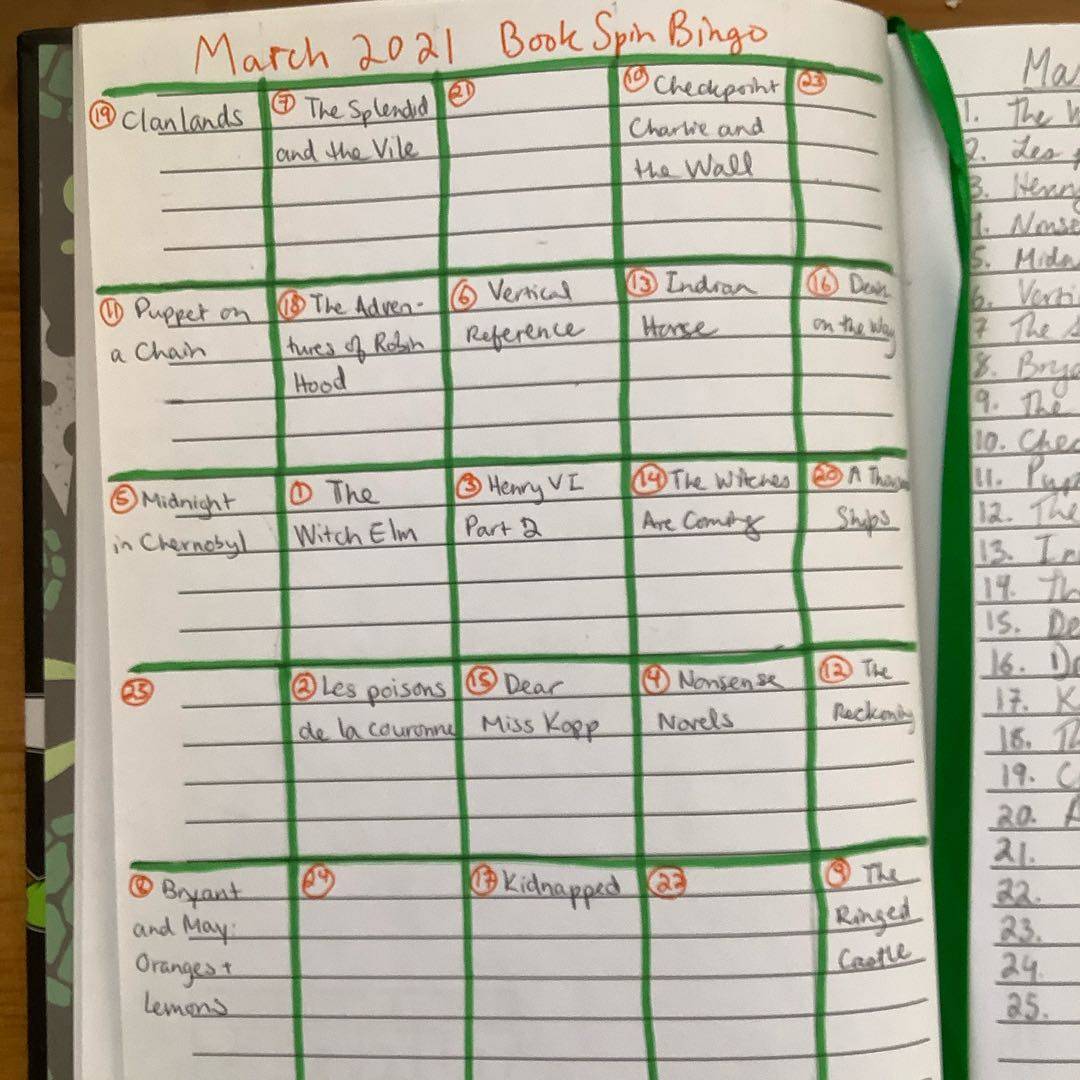 March 2021 Book Spin Bingo
19 Clanlands
7 The Splendid
and the Vile
21
10 Checkpoint
Charlie and
the Wall
23
11 Puppet on
a Chain
18 The Adven-
tures of Robin
Hood
6 Vertical
Reference
13 Indian
Horse
16
on the Way
5 Midnight
in Chernobyl
1 The
Witch Elm
3 Henry VI
Part 2
14 The Witches
Are Coming
20 A Thousand
Ships
25
2 Les poisons
de la couronne
15 Dear
Miss Kopp
4 Nonsense
Novels
12 The
Reckoning
8 Bryant
and May:
Oranges +
Lemons
24
17 Kidnapped
22
9 The
Ringed
Castle
Ma
1. The W
2. Les p
3. Henry
4. Nonse
5. Midn
6. Verti
7 The S
8. Brya
9. The
10. Chec
11. Pupp
12. The
13. In
14. Th
15. De
16. D
17. K
18. Th
19. C
20. A
21.
22.
23.
24.
25.